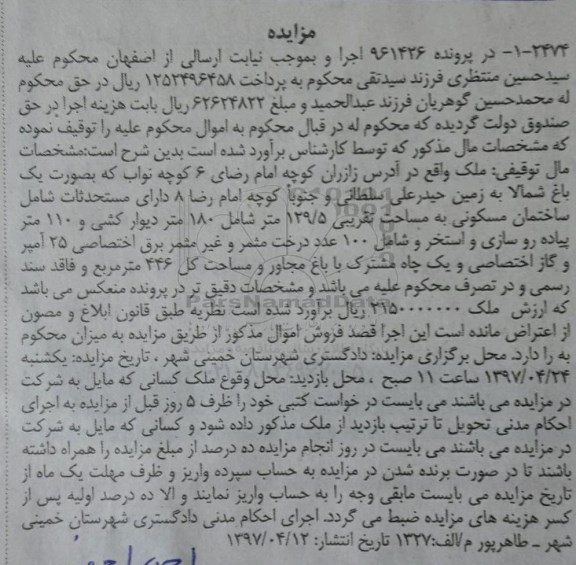 مزایده
۱-۲۴۷۴- در پرونده ۹۶۱۴۲۶ اجرا و بموجب نیابت ارسالی از اصفهان محکوم علیه
سیدحسین منتظری فرزند سیدتقی محکوم به پرداخت ۱۲۵۲۴۹۶۴۵۸ ریال در حق محکوم
له محمدحسین گوهریان فرزند عبدالحمید و مبلغ ۶۲۶۲۴۸۲۲ ریال بابت هزینه اجرا در حق
صندوق دولت گردیده که محکوم له در قبال محکوم به اموال محکوم علیه را توقیف نموده
که مشخصات مال مذکور که توسط کارشناس برآورد شده است بدین شرح است:مشخصات
مال توقیفی: ملک واقع در آدرس زازران کوچه امام رضای ۶ کوچه نواب که بصورت یک
باغ شمالا به زمین حیدرعلی سلطانی و جنوباً کوچه امام رضا ۸ دارای مستحدثات شامل
ساختمان مسکونی به مساحت تقریبی ۱۲۹/۵ متر شامل ۱۸۰ متر دیوار کشی و ۱۱۰ متر
پیاده رو سازی و استخر و شامل ۱۰۰ عدد درخت مثمر و غیر مثمر برق اختصاصی ۲۵ آمپر
و گاز اختصاصی و یک چاه مشترک با باغ مجاور و مساحت کل ۴۴۶ مترمربع و فاقد سند
رسمی و در تصرف محکوم علیه می باشد و مشخصات دقیق تر در پرونده منعکس می باشد
ParsNamadData
که ارزش ملک ۲۱۵۰۰۰۰۰۰۰ ریال برآورد شده است نظریه طبق قانون ابلاغ و مصون
از اعتراض مانده است این اجرا قصد فروش اموال مذکور از طریق مزایده به میزان محکوم
به را دارد. محل برگزاری مزایده: دادگستری شهرستان خمینی شهر ، تاریخ مزایده: یکشنبه
۱۳۹۷/۰۴/۲۴ ساعت ۱۱ صبح ، محل بازدید: محل وقوع ملک کسانی که مایل به شرکت
در مزایده می باشند می بایست در خواست کتبی خود را ظرف ۵ روز قبل از مزایده به اجرای
احکام مدنی تحویل تا ترتیب بازدید از ملک مذکور داده شود و کسانی که مایل به شرکت
در مزایده می باشند می بایست در روز انجام مزایده ده درصد از مبلغ مزایده را همراه داشته
باشند تا در صورت برنده شدن در مزایده به حساب سپرده واریز و ظرف مهلت یک ماه از
تاریخ مزایده می بایست مابقی وجه را به حساب واریز نمایند و الا ده درصد اولیه پس از
کسر هزینه های مزایده ضبط می گردد. اجرای احکام مدنی دادگستری شهرستان خمینی
شهر ـ طاهرپور م/الف:۱۳۲۷ تاریخ انتشار: ۱۳۹۷/۰۴/۱۲